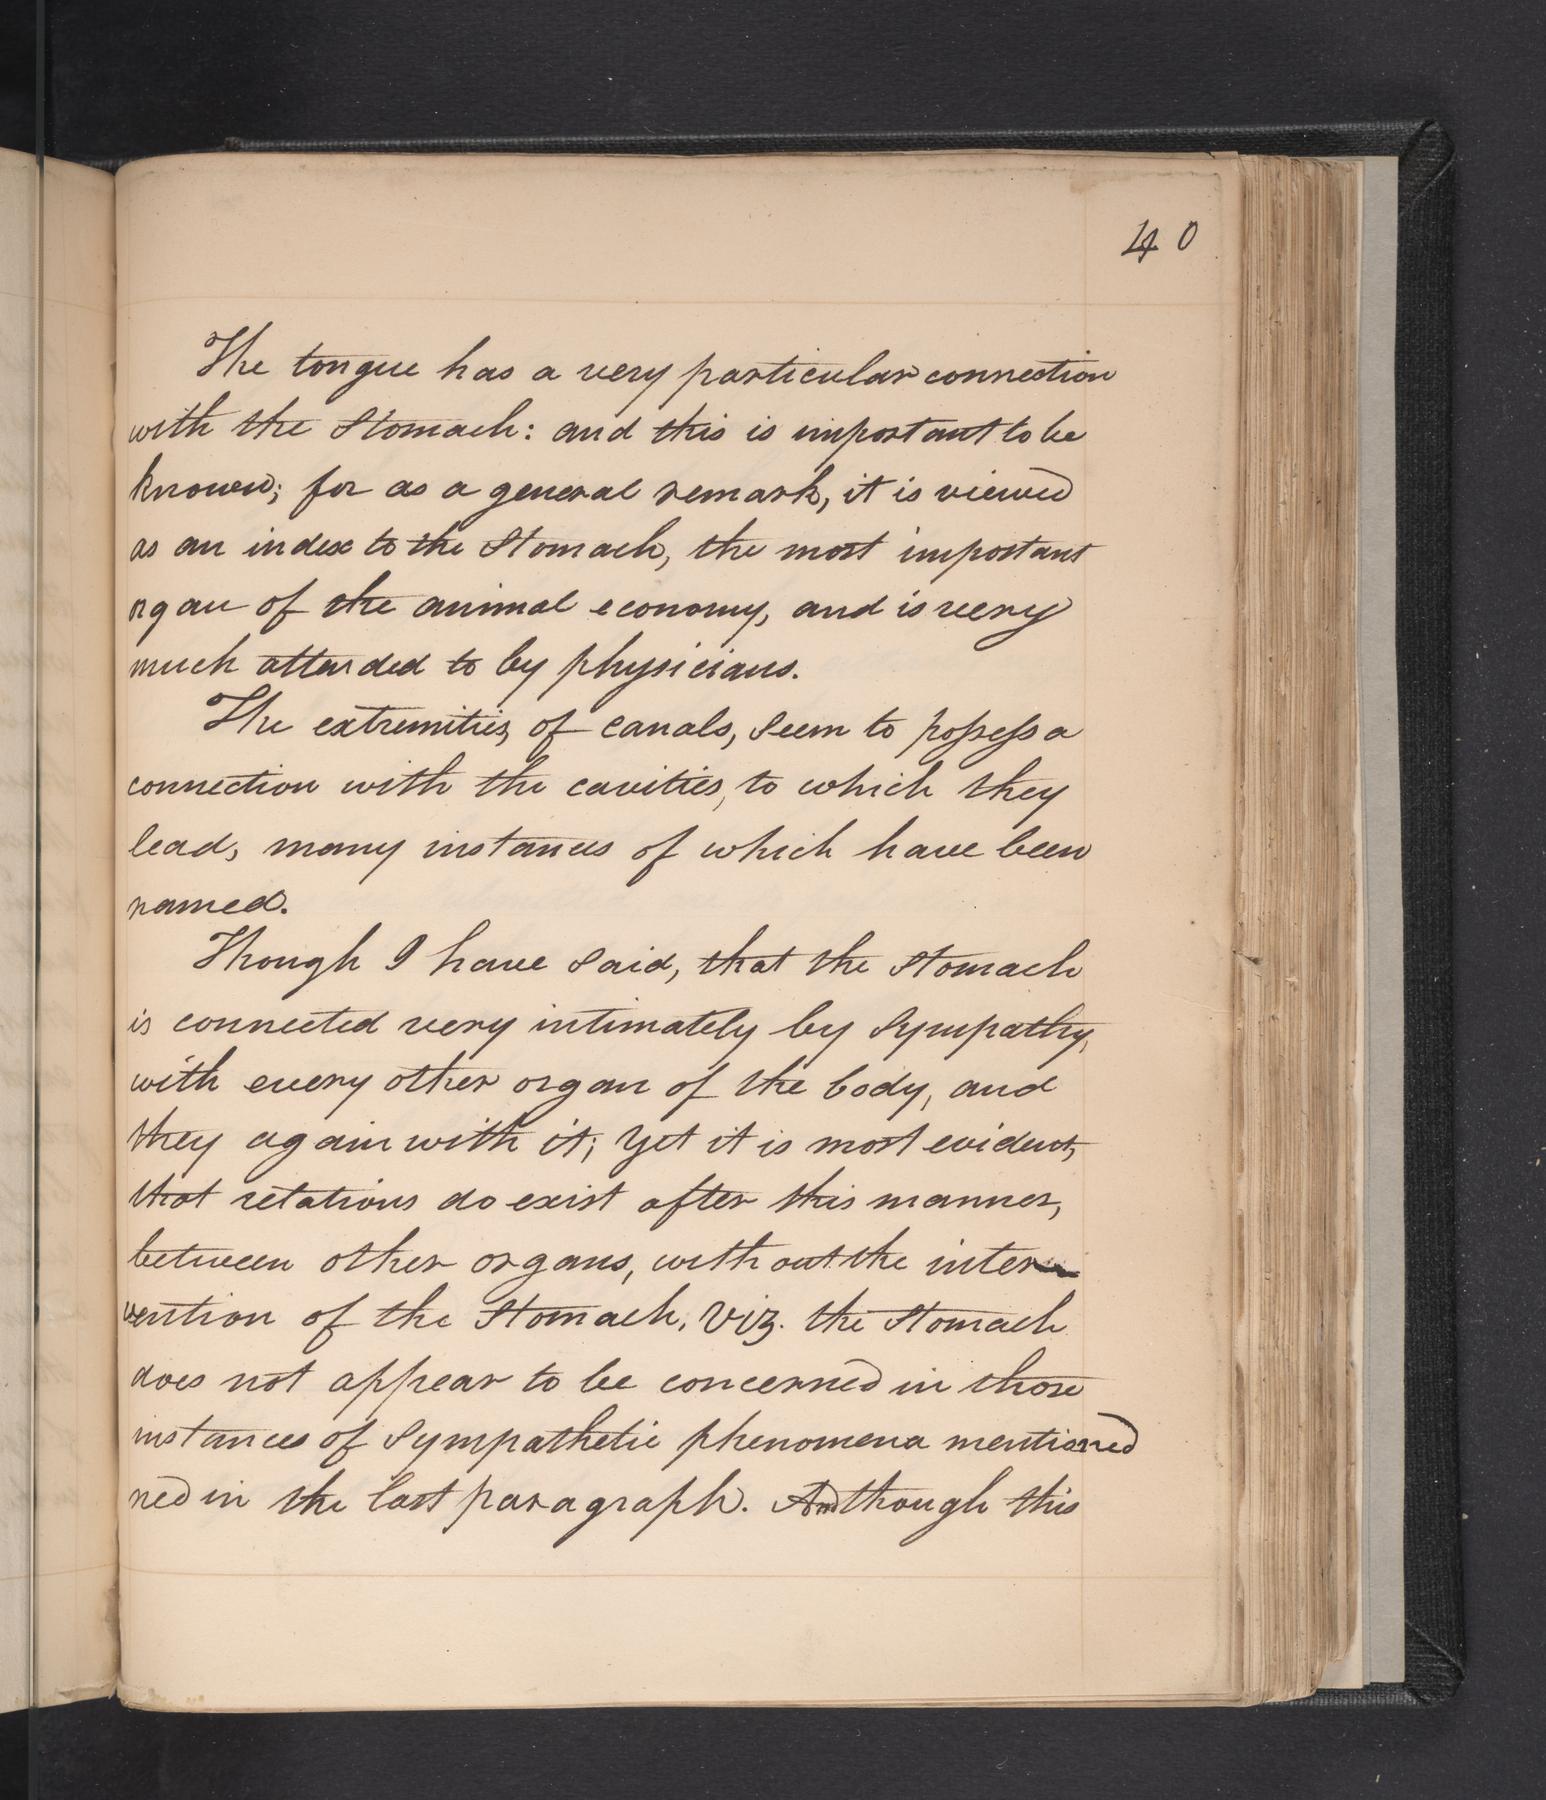 40
The tongue has a very particular connection
with the Stomach: and this is important to be
known; for as a general remark, it is viewed
as an index to the Stomach, the most important
organ of the animal economy, and is very
much attended to by physicians.
The extremities of canals, seem to possess a
connection with the cavities, to which they
lead, many instances of which have been
named.
Though I have said, that the Stomach
is connected very intimately by Sympathy,
with every other organ of the body, and
they again with it; yet it is most evident,
that relations do exist after this manner,
between other organs, without the inter
vention of the Stomach, viz. the Stomach
does not appear to be concerned in those
instances of Sympathetic phenomena mentioned
ned in the last paragraph. And though this